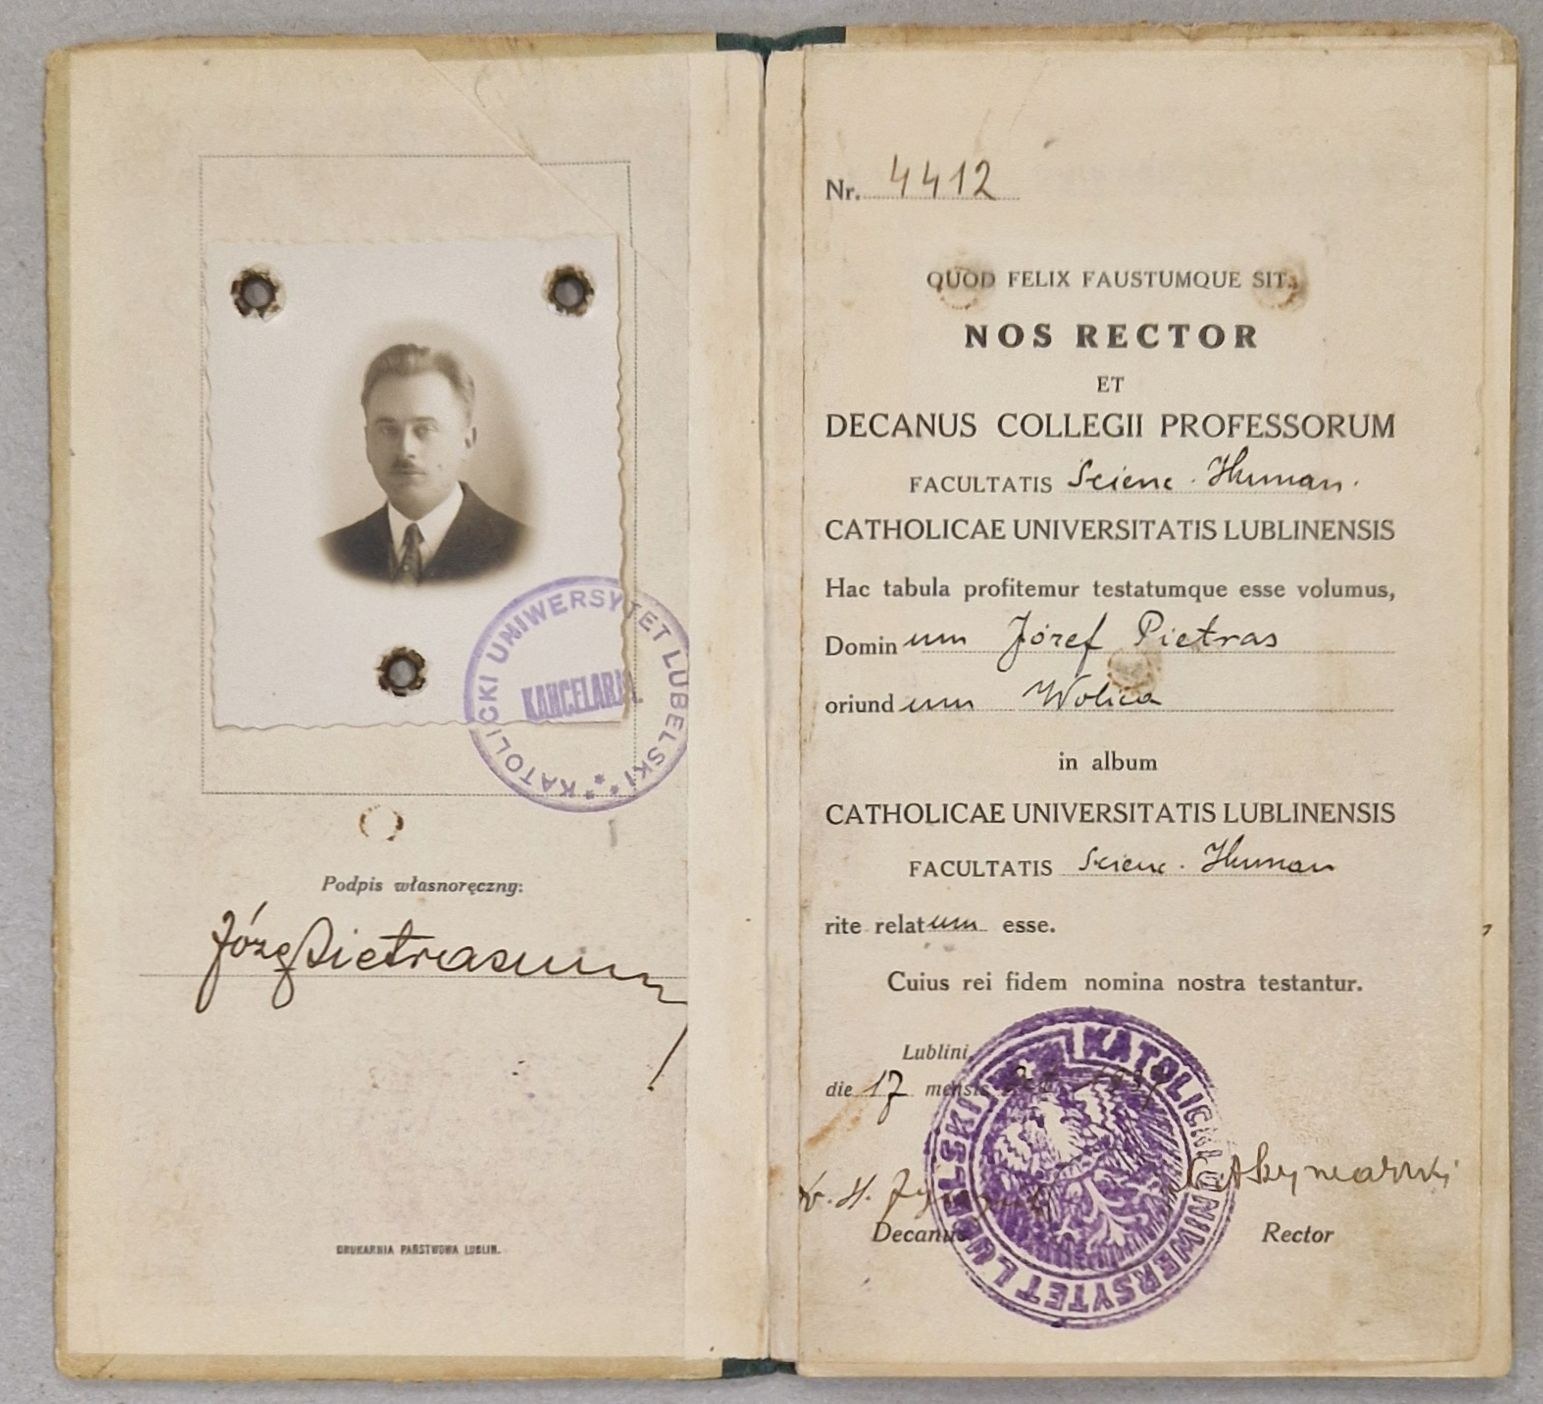 KATOLICKI UNIWERSYTET LUBELSKI
KANCELARIA
Podpis własnoręczny:
Józef Pietras
DRUKARNIA PAŃSTWOWA LUBLIN.
Nr. 4412
QUOD FELIX FAUSTUMQUE SIT.
NOS RECTOR
ET
DECANUS COLLEGII PROFESSORUM
FACULTATIS Scienc. Human.
CATHOLICAE UNIVERSITATIS LUBLINENSIS
Hac tabula profitemur testatumque esse volumus,
Dominum Józef Pietras
oriundum Wolica
in album
CATHOLICAE UNIVERSITATIS LUBLINENSIS
FACULTATIS Scienc. Human
rite relatum esse.
Cuius rei fidem nomina nostra testantur.
Lublini,
die 17 mensis
KATOLICKI UNIWERSYTET LUBELSKI
Decanus Rector